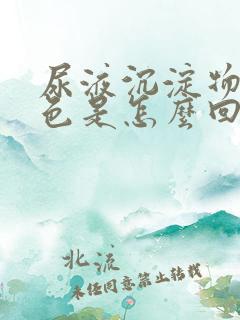 尿液沉淀物
色是怎麼回
北流
未经同意禁止转载